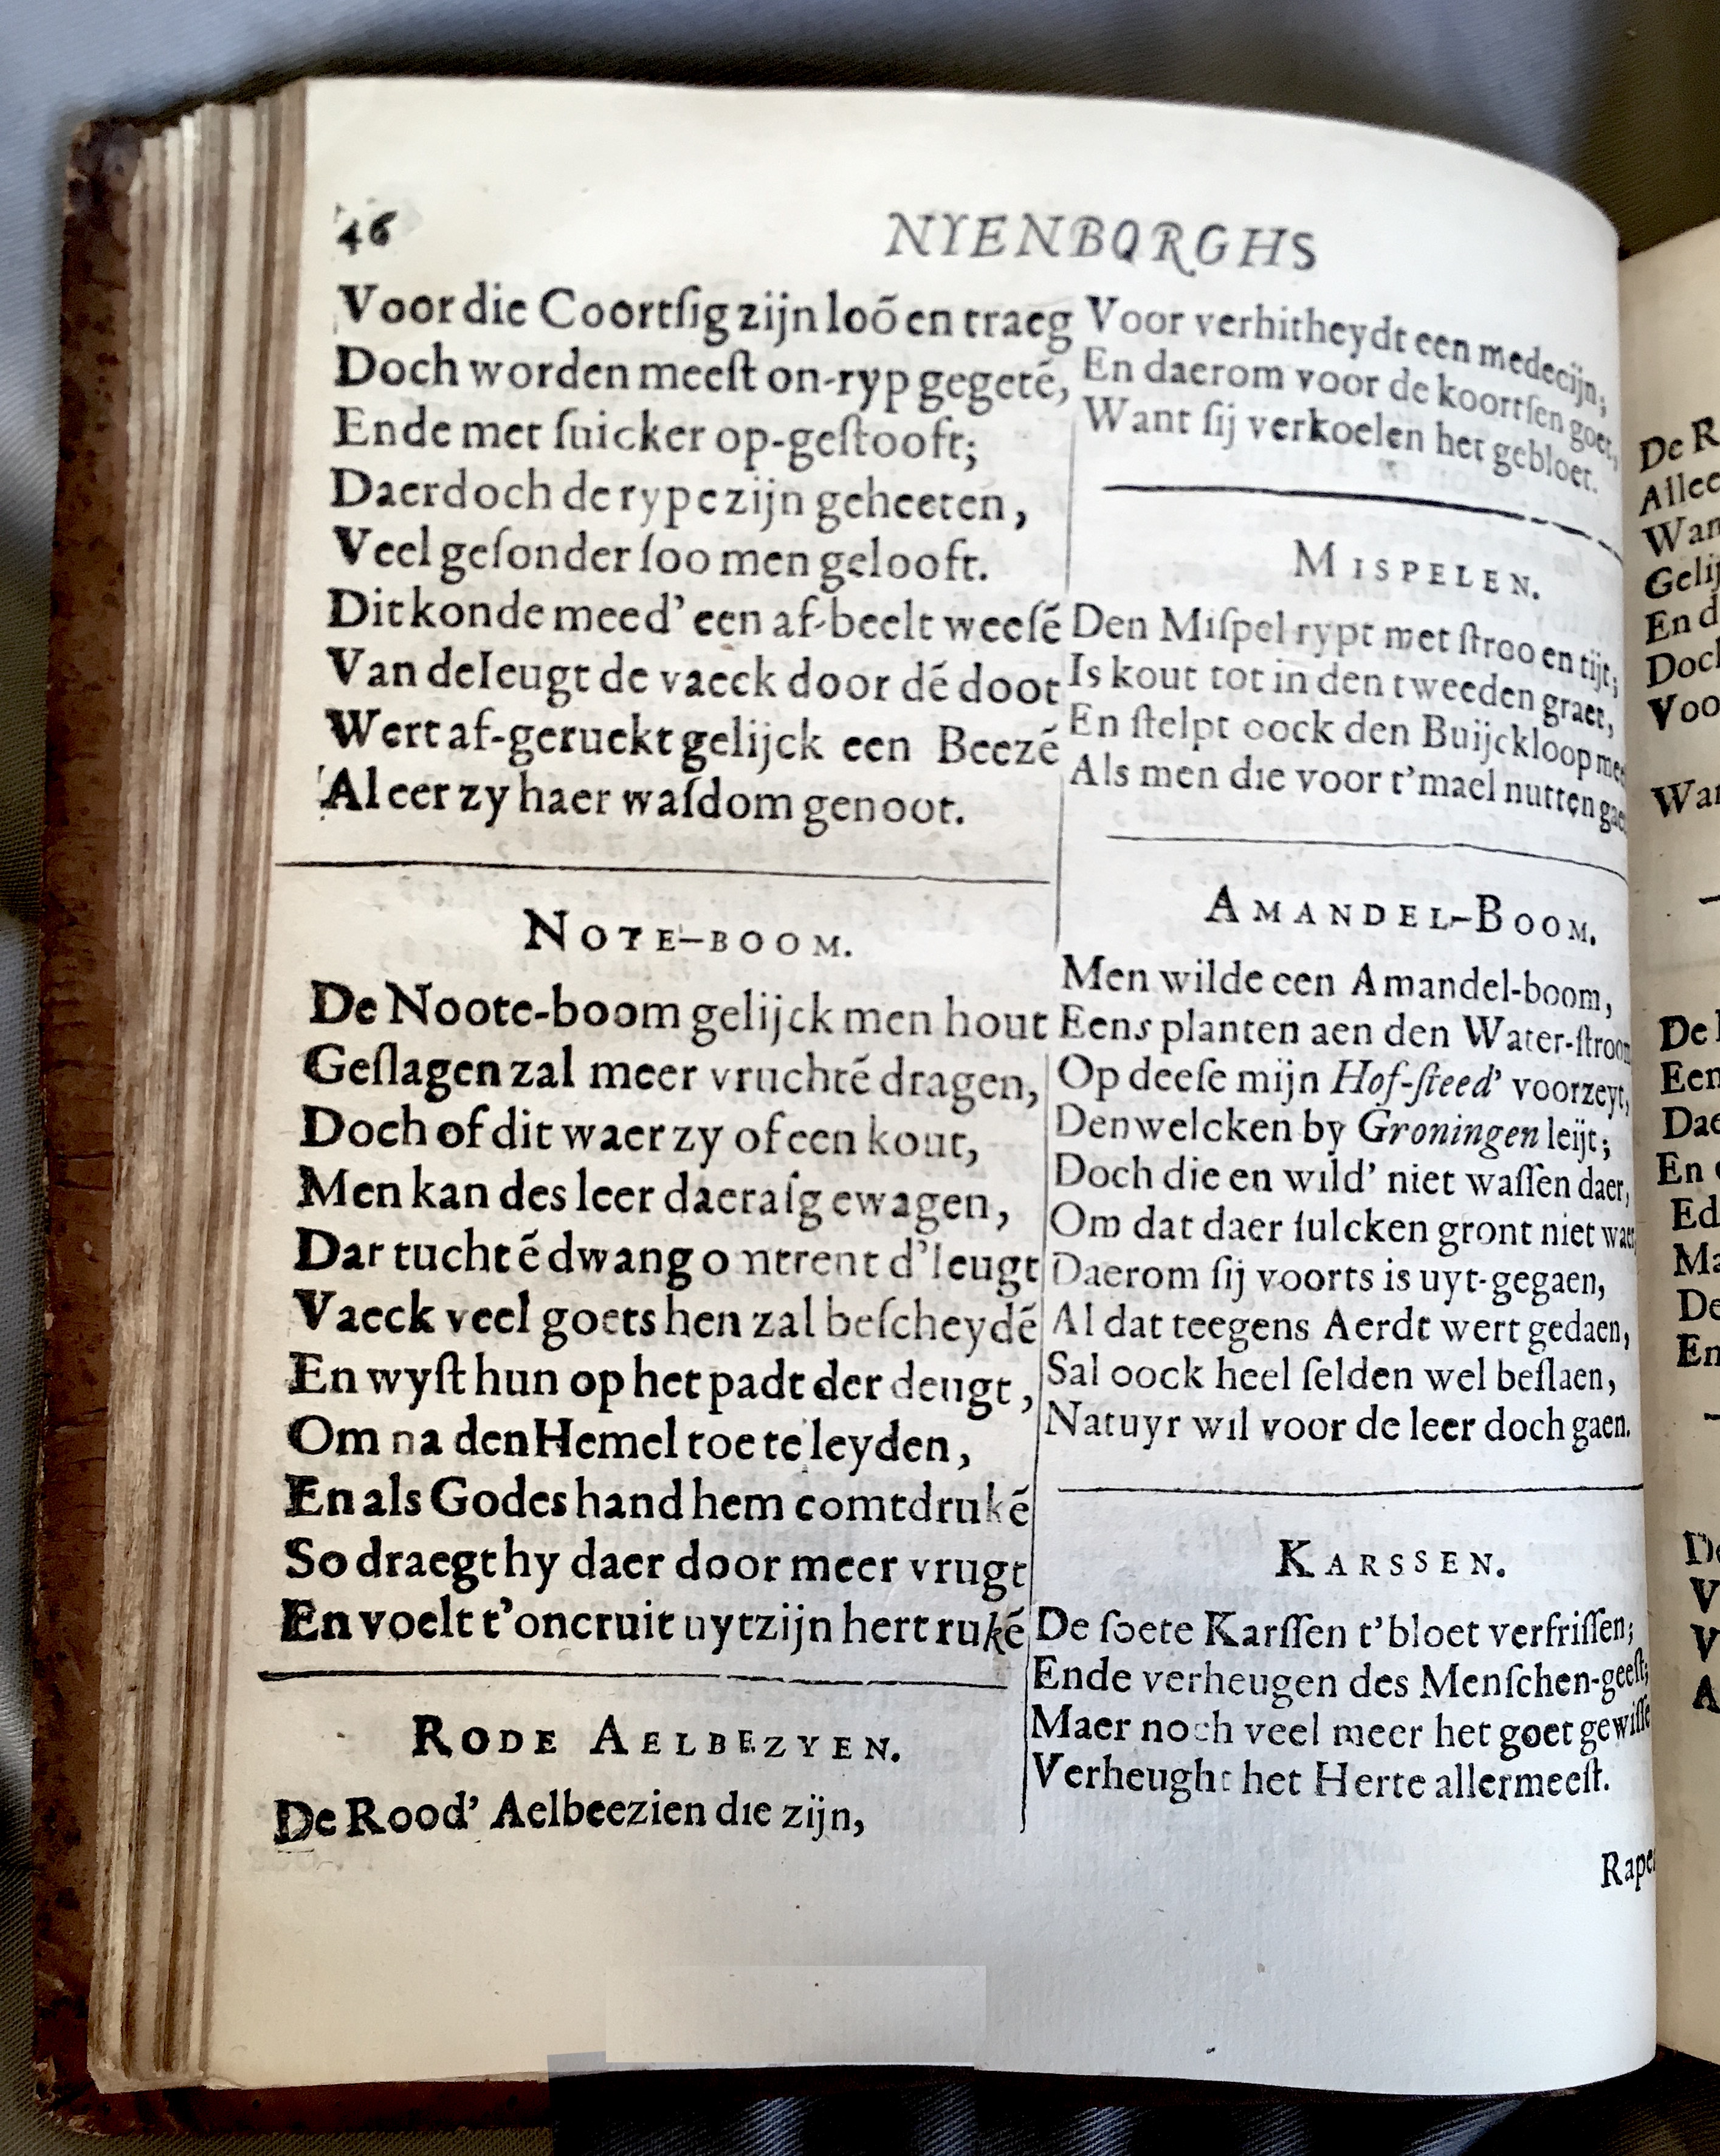 46
NYENBORGHS
Voor die Coortſig zijn loõ en traeg
Doch worden meeſt on-ryp gegetẽ,
Ende met ſuicker op-geſtooft;
Daer doch de rype zijn geheeten,
Veel geſonder ſoo men gelooft.
Dit konde meed' een af-beelt weeſẽ
Van de Ieugt de vaeck door dẽ doot
Wert af-geruckt gelijck een Beezẽ
Al eer zy haer waſdom genoot.
NOTE-BOOM.
De Noote-boom gelijck men hout
Geſlagen zal meer vruchtẽ dragen,
Doch of dit waer zy of een kout,
Men kan des leer daer aſg ewagen,
Dat tuchtẽ dwang o ntrent d'Ieugt
Vaeck veel goets hen zal beſcheydẽ
En wyſt hun op het padt der deugt,
Om na den Hemel toe te leyden,
En als Godes hand hem comt drukẽ
So draegt hy daer door meer vrugt
En voelt t'oncruit uyt zijn hert rukẽ
RODE AELBEZYEN.
De Rood' Aelbeezien die zijn,
Voor verhitheydt een medecijn;
En daerom voor de koortſen goet,
Want ſij verkoelen het gebloet.
MISPELEN.
Den Miſpel rypt met ſtroo en tijt;
Is kout tot in den tweeden graet,
En ſtelpt oock den Buijckloop mee
Als men die voor t'mael nutten gae
AMANDEL-BOOM.
Men wilde een Amandel-boom,
Eens planten aen den Water-ſtroom
Op deeſe mijn Hof-ſteed' voorzeyt,
Den welcken by Groningen leijt;
Doch die en wild' niet waſſen daer,
Om dat daer ſulcken gront niet waer
Daerom ſij voorts is uyt-gegaen,
Al dat teegens Aerdt wert gedaen,
Sal oock heel ſelden wel beſlaen,
Natuyr wil voor de leer doch gaen.
KARSSEN.
De ſoete Karſſen t'bloet verfriſſen;
Ende verheugen des Menſchen-geeſt;
Maer noch veel meer het goet gewiſſe
Verheught het Herte allermeeſt.
Rape
De R
Allee
Wan
Gelij
En d
Doch
Voo
Wan
De
Een
Dae
En
Ed
Ma
De
En
De
V
V
A